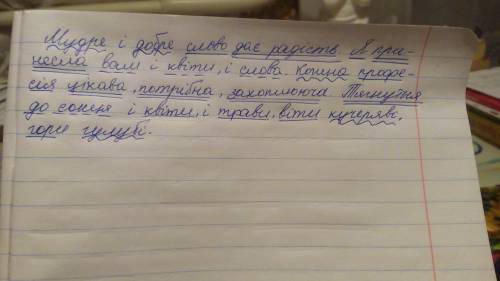 Мудре і добре слово дає радість. Я при-
несла вам і квіти, і слова. Кожна профе-
сія цікава, потрібна, захоплююча. Тягнуться
до сонця і квіти, і трави, віти кучеряві,
гори голубі.